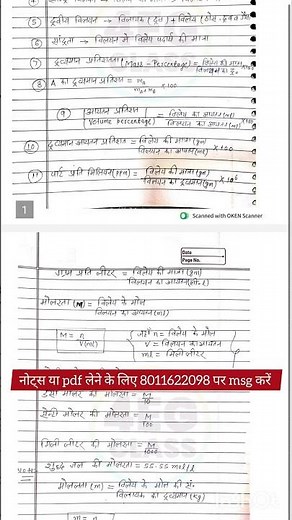 ⑤ द्रवीय विलयन → विलायक (द्रव) + विलेय (ठोस - द्रव व गैस
⑥ सांद्रता → विलयन में विलेय पदार्थ की मात्रा
⑦ द्रव्यमान प्रतिशतता (Mass - Percentage) = विलेय की मात्रा
⑧ A का द्रव्यमान प्रतिशत = mA / mA + mB × 100
⑨ आयतन प्रतिशत (Volume percentage) = विलेय का आयतन (ml) / विलयन का आयतन (ml) × 100
⑩ द्रव्यमान आयतन प्रतिशत = विलेय की मात्रा (gm) / विलयन का आयतन (ml) × 100
⑪ पार्ट प्रति मिलियन (PPM) = विलेय की मात्रा (gm) / विलयन का द्रव्यमान (gm) × 10⁶
1
Scanned with OKEN Scanner
Date
Page No.
ग्राम प्रति लीटर = विलेय की मात्रा (gm) / विलयन का आयतन
मोलरता (M) = विलेय के मोल / विलयन का आयतन
M = n / V(ml)
जहाँ n = विलेय के मोल
V = विलयन का आयतन
ml = मिली लीटर
नोट्स या pdf लेने के लिए 8011622098 पर msg करें
डेसी मोलर की मोलरता = M / 10
सेन्टी मोलर की मोलरता = M / 100
मिली मोलर की मोलरता = M / 1000
शुद्ध जल की मोलरता = 55.55 mol/l
मोललता (m) = विलेय के मोल की सं. / विलायक का द्रव्यमान (kg)
m = n